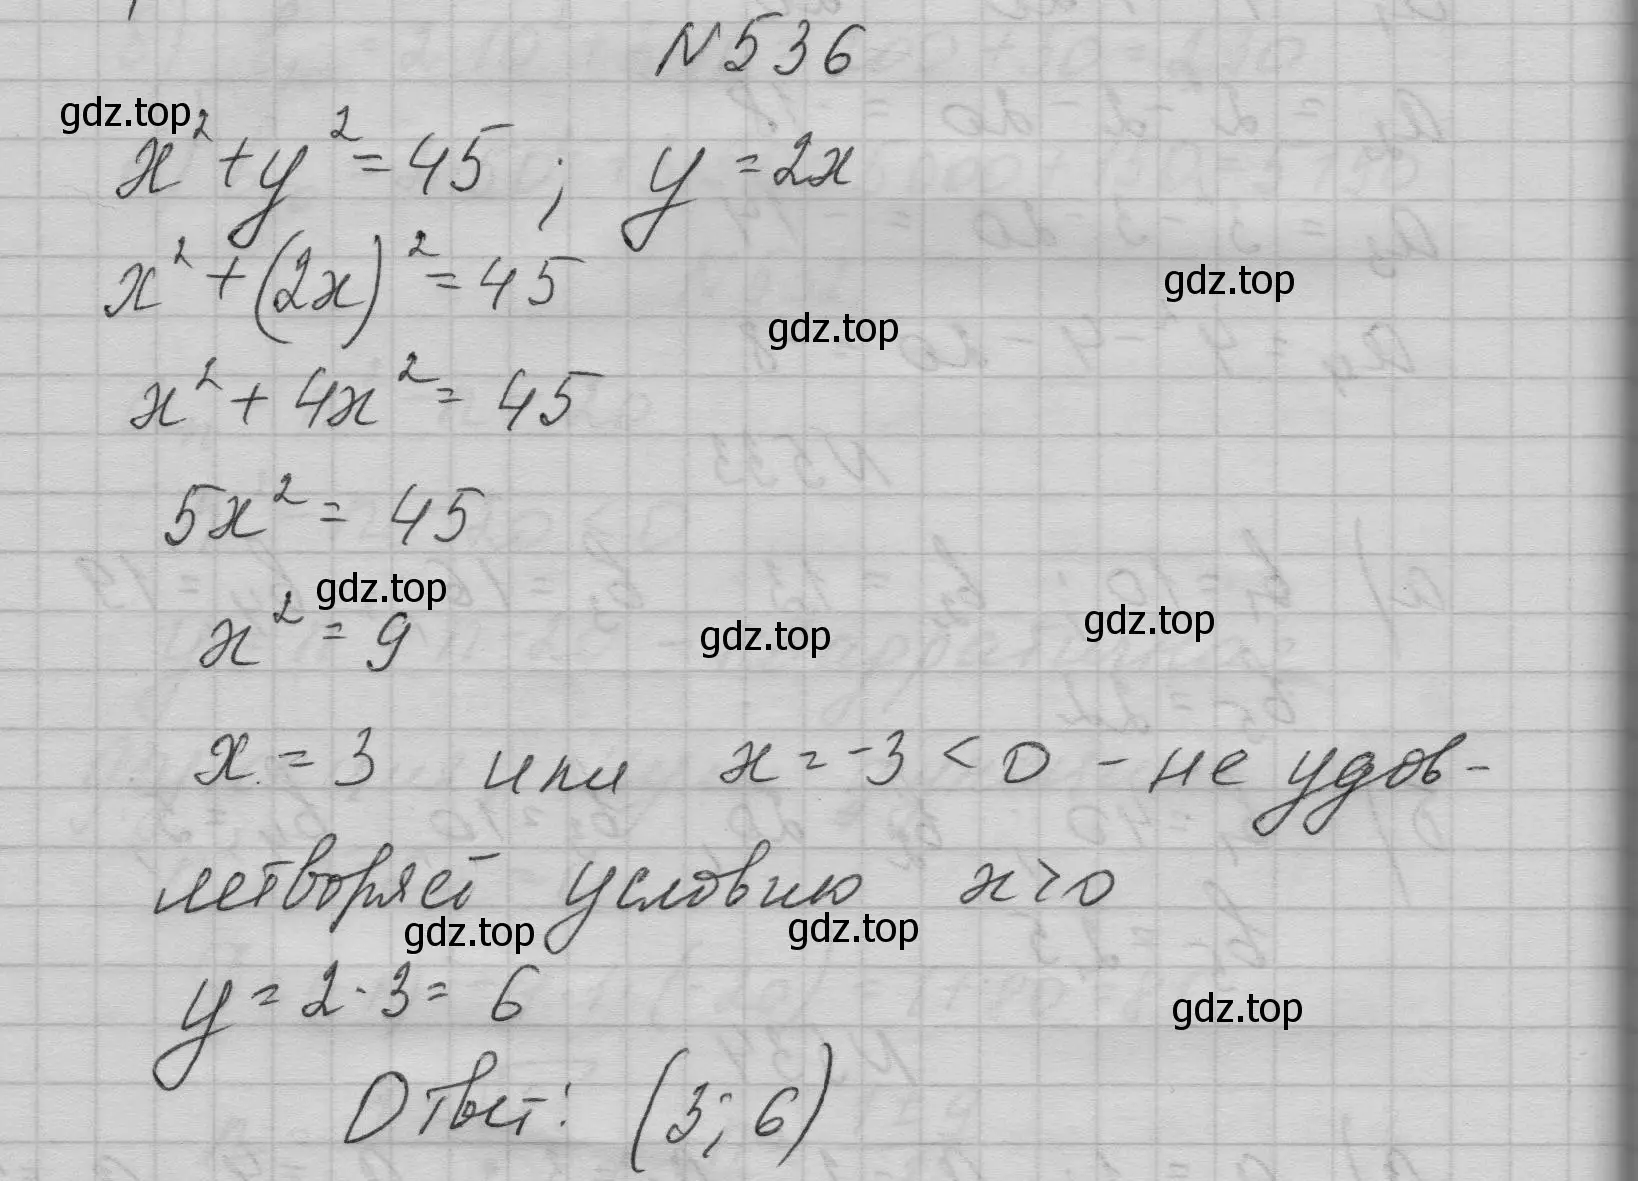 N 536
gdz.top
x² + y² = 45 ; y = 2x
x² + (2x)² = 45
gdz.top
gdz.top
x² + 4x² = 45
5x² = 45
gdz.top
gdz.top
gdz.top
x² = 9
x = 3 или x = -3 < 0 - не удов-
летворяет условию x > 0
gdz.top
gdz.top
y = 2 · 3 = 6
gdz.top
Ответ: (3; 6)